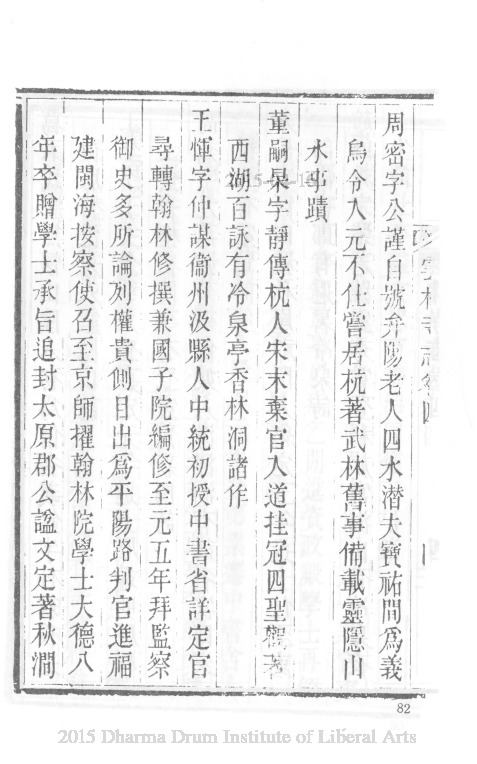 周密字公謹自號弁陽老人四水潛夫寶祐間爲義
烏令入元不仕嘗居杭著武林舊事備載靈隱山
水事蹟
董嗣杲字靜傳杭人宋末棄官入道挂冠四聖觀著
西湖百詠有冷泉亭香林洞諸作
王惲字仲謀衞州汲縣人中統初授中書省詳定官
尋轉翰林修撰兼國子院編修至元五年拜監察
御史多所論列權貴側目出爲平陽路判官進福
建閩海按察使召至京師擢翰林院學士大德八
年卒贈學士承旨追封太原郡公諡文定著秋澗
82
2015 Dharma Drum Institute of Liberal Arts